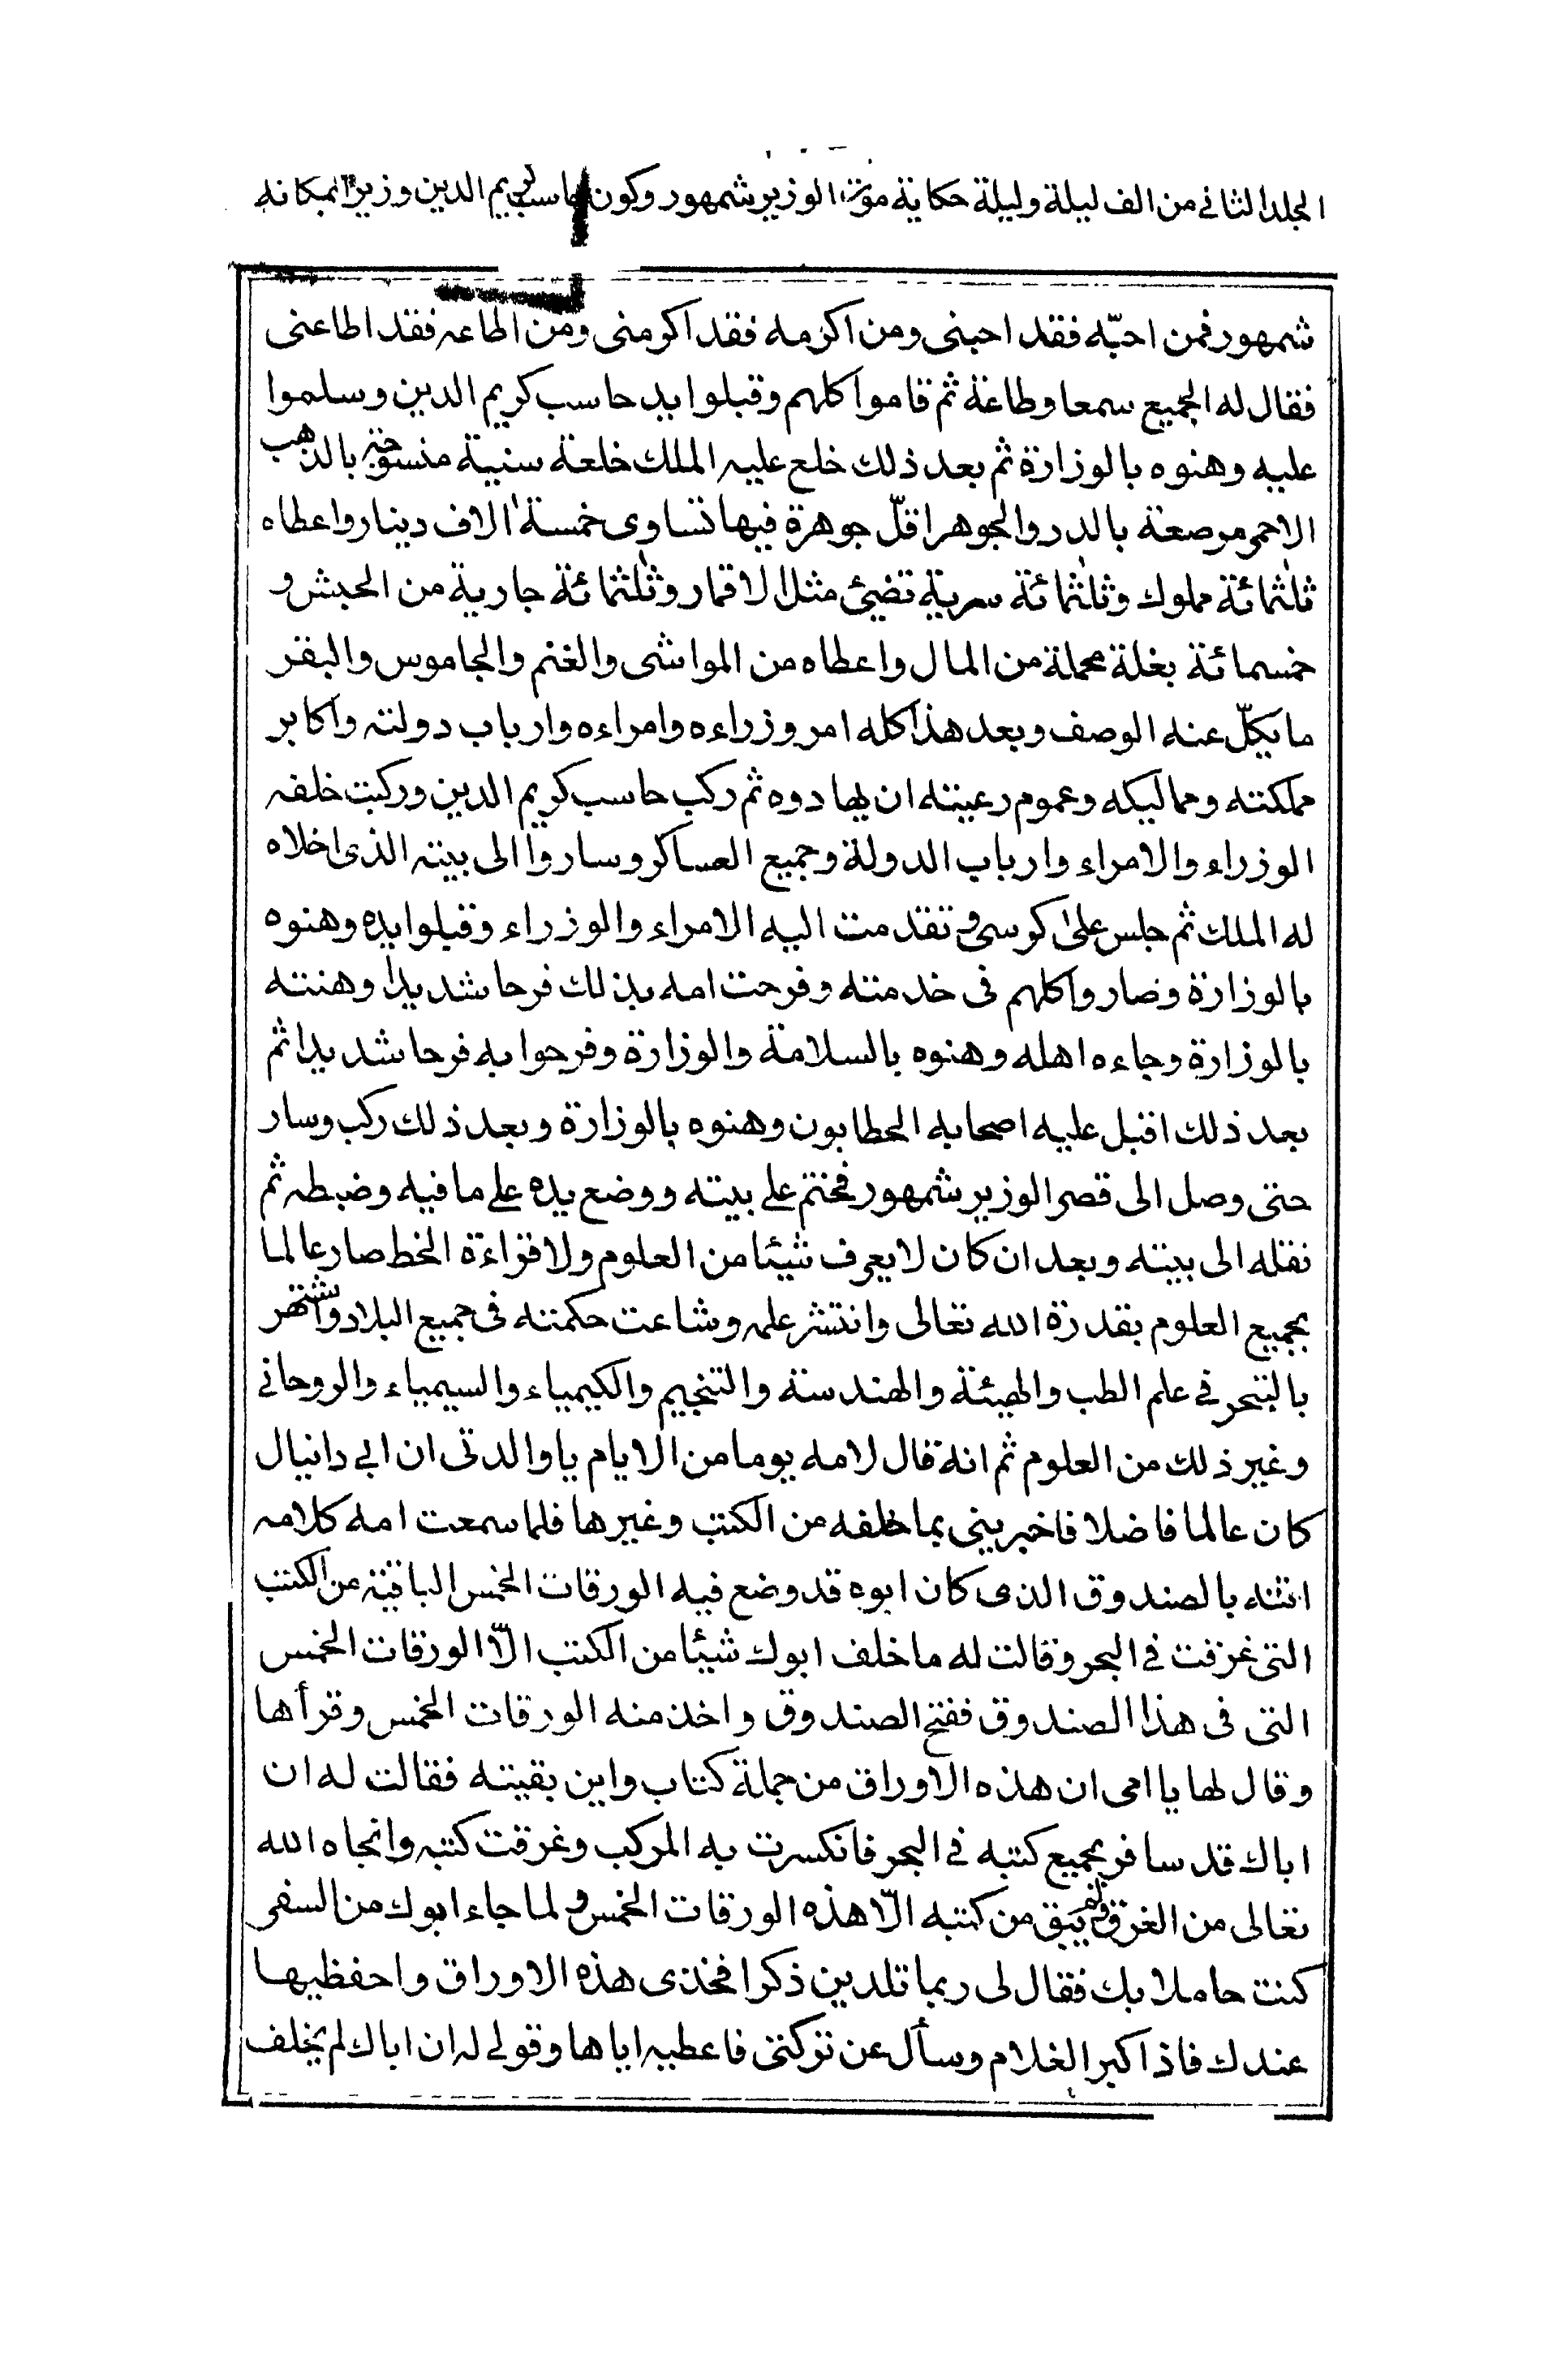 المجلد الثاني من الف ليلة وليلة حكاية موت الوزير شمهور وكون حاسب كريم الدين وزيرا بمكانه
شمهور فمن احبّه فقد احبنى ومن اكرمه فقد اكرمنى ومن اطاعه فقد اطاعنى
فقال له الجميع سمعا وطاعة ثم قاموا كلهم وقبلوا يد حاسب كريم الدين وسلموا
عليه وهنوه بالوزارة ثم بعد ذلك خلع عليه الملك خلعة سنية منسوجة بالذهب
الاحمر مرصعة بالدر والجوهر اقلّ جوهرة فيها تساوى خمسة الاف دينار واعطاه
ثلثمائة مملوك وثلثمائة سرية تضيئ مثل الاقمار وثلثمائة جارية من الحبش و
خمسمائة بغلة محملة من المال واعطاه من المواشى والغنم والجاموس والبقر
ما يكلّ عنه الوصف وبعد هذا كله امر وزراءه وامراءه وارباب دولته واكابر
مملكته ومماليكه وعموم رعيته ان يهادوه ثم ركب حاسب كريم الدين وركبت خلفه
الوزراء والامراء وارباب الدولة وجميع العساكر وساروا الى بيته الذى اخلاه
له الملك ثم جلس على كرسى وتقدمت اليه الامراء والوزراء وقبلوا يده وهنوه
بالوزارة وصاروا كلهم فى خدمته وفرحت امه بذلك فرحا شديدا وهنته
بالوزارة وجاءه اهله وهنوه بالسلامة والوزارة وفرحوا به فرحا شديدا ثم
بعد ذلك اقبل عليه اصحابه الحطابون وهنوه بالوزارة وبعد ذلك ركب وسار
حتى وصل الى قصر الوزير شمهور فختم على بيته ووضع يده على ما فيه وضبطه ثم
نقله الى بيته وبعد ان كان لا يعرف شيئا من العلوم ولا قراءة الخط صار عالما
بجميع العلوم بقدرة الله تعالى وانتشر علمه وشاعت حكمته فى جميع البلاد واشتهر
بالتبحر في علم الطب والهيئة والهندسة والتنجيم والكيمياء والسيمياء والروحاني
وغير ذلك من العلوم ثم انه قال لامه يوما من الايام يا والدتى ان ابي دانيال
كان عالما فاضلا فاخبرينى بما خلفه من الكتب وغيرها فلما سمعت امه كلامه
اتته بالصندوق الذى كان ابوه قد وضع فيه الورقات الخمس الباقية من الكتب
التى غرقت في البحر وقالت له ما خلف ابوك شيئا من الكتب الّا الورقات الخمس
التى فى هذا الصندوق ففتح الصندوق واخذ منه الورقات الخمس وقرأها
وقال لها يا امى ان هذه الاوراق من جملة كتاب واين بقيته فقالت له ان
اباك قد سافر بجميع كتبه في البحر فانكسرت به المركب وغرقت كتبه وانجاه الله
تعالى من الغرق ولم يبق من كتبه الّا هذه الورقات الخمس ولما جاء ابوك من السفر
كنت حاملا بك فقال لى ربما تلدين ذكرا فخذى هذه الاوراق واحفظيها
عندك فاذا كبر الغلام وسأل عن تركتى فاعطيه اياها وقولي له ان اباك لم يخلف